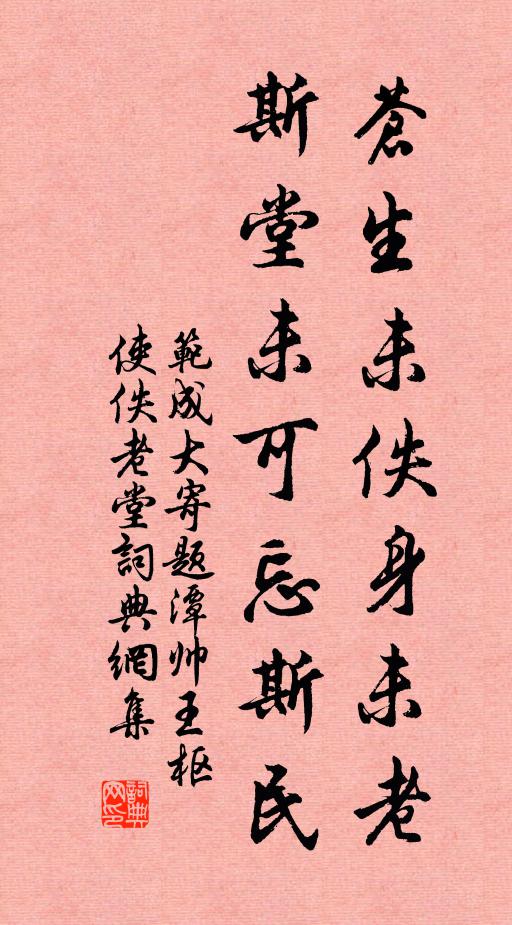 蒼生未佚身未老
斯堂未可忘斯民
範成大寄题潭帅王枢
使佚老堂詞典網集
詞典网印